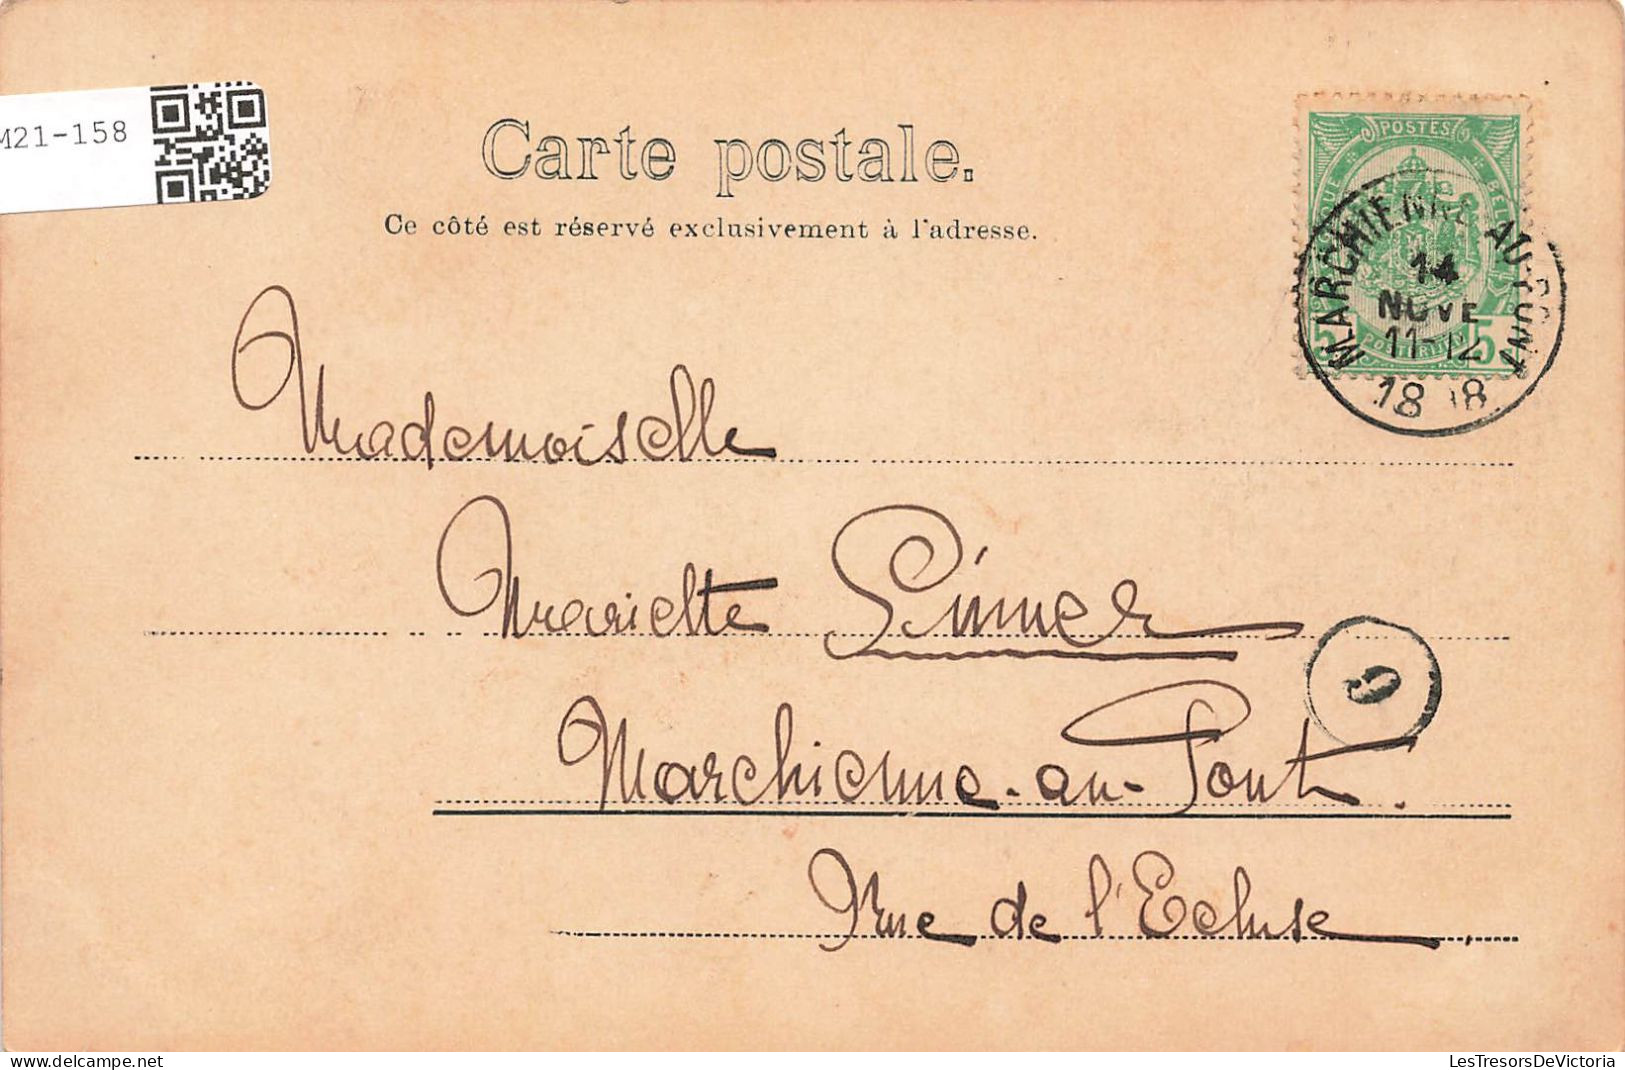 M21-158
Carte postale.
Ce côté est réservé exclusivement à l'adresse.
POSTES
BELGIQUE
5 5
POSTERIJEN
MARCHIENNE-AU-PONT
14
NOVE
11-12
18 8
Mademoiselle
Mariette
Marchienne-au-Pont.
9
Rue de l'Ecluse
LesTresorsDeVictoria